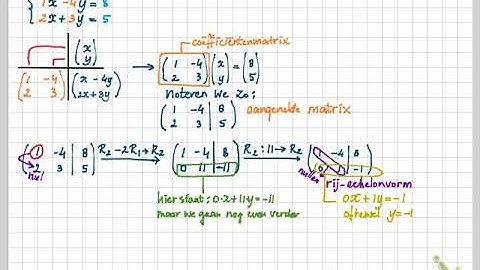 1x - 4y = 8
2x + 3y = 5
( x
y )
( 1 -4
2 3 ) ( x - 4y
2x + 3y )
coëfficiëntenmatrix
( 1 -4
2 3 ) ( x
y ) = ( 8
5 )
Noteren we zo:
( 1 -4 | 8
2 3 | 5 ) aangevulde matrix
( 1 -4 | 8
2 3 | 5 ) R₂ - 2R₁ → R₂ ( 1 -4 | 8
0 11 | -11 ) R₂ : 11 → R₂ ( 1 -4 | 8
0 1 | -1 )
nul!
nullen
rij-echelonvorm
hier staat: 0·x + 11y = -11
maar we gaan nog even verder
0x + 1y = -1
oftewel y = -1